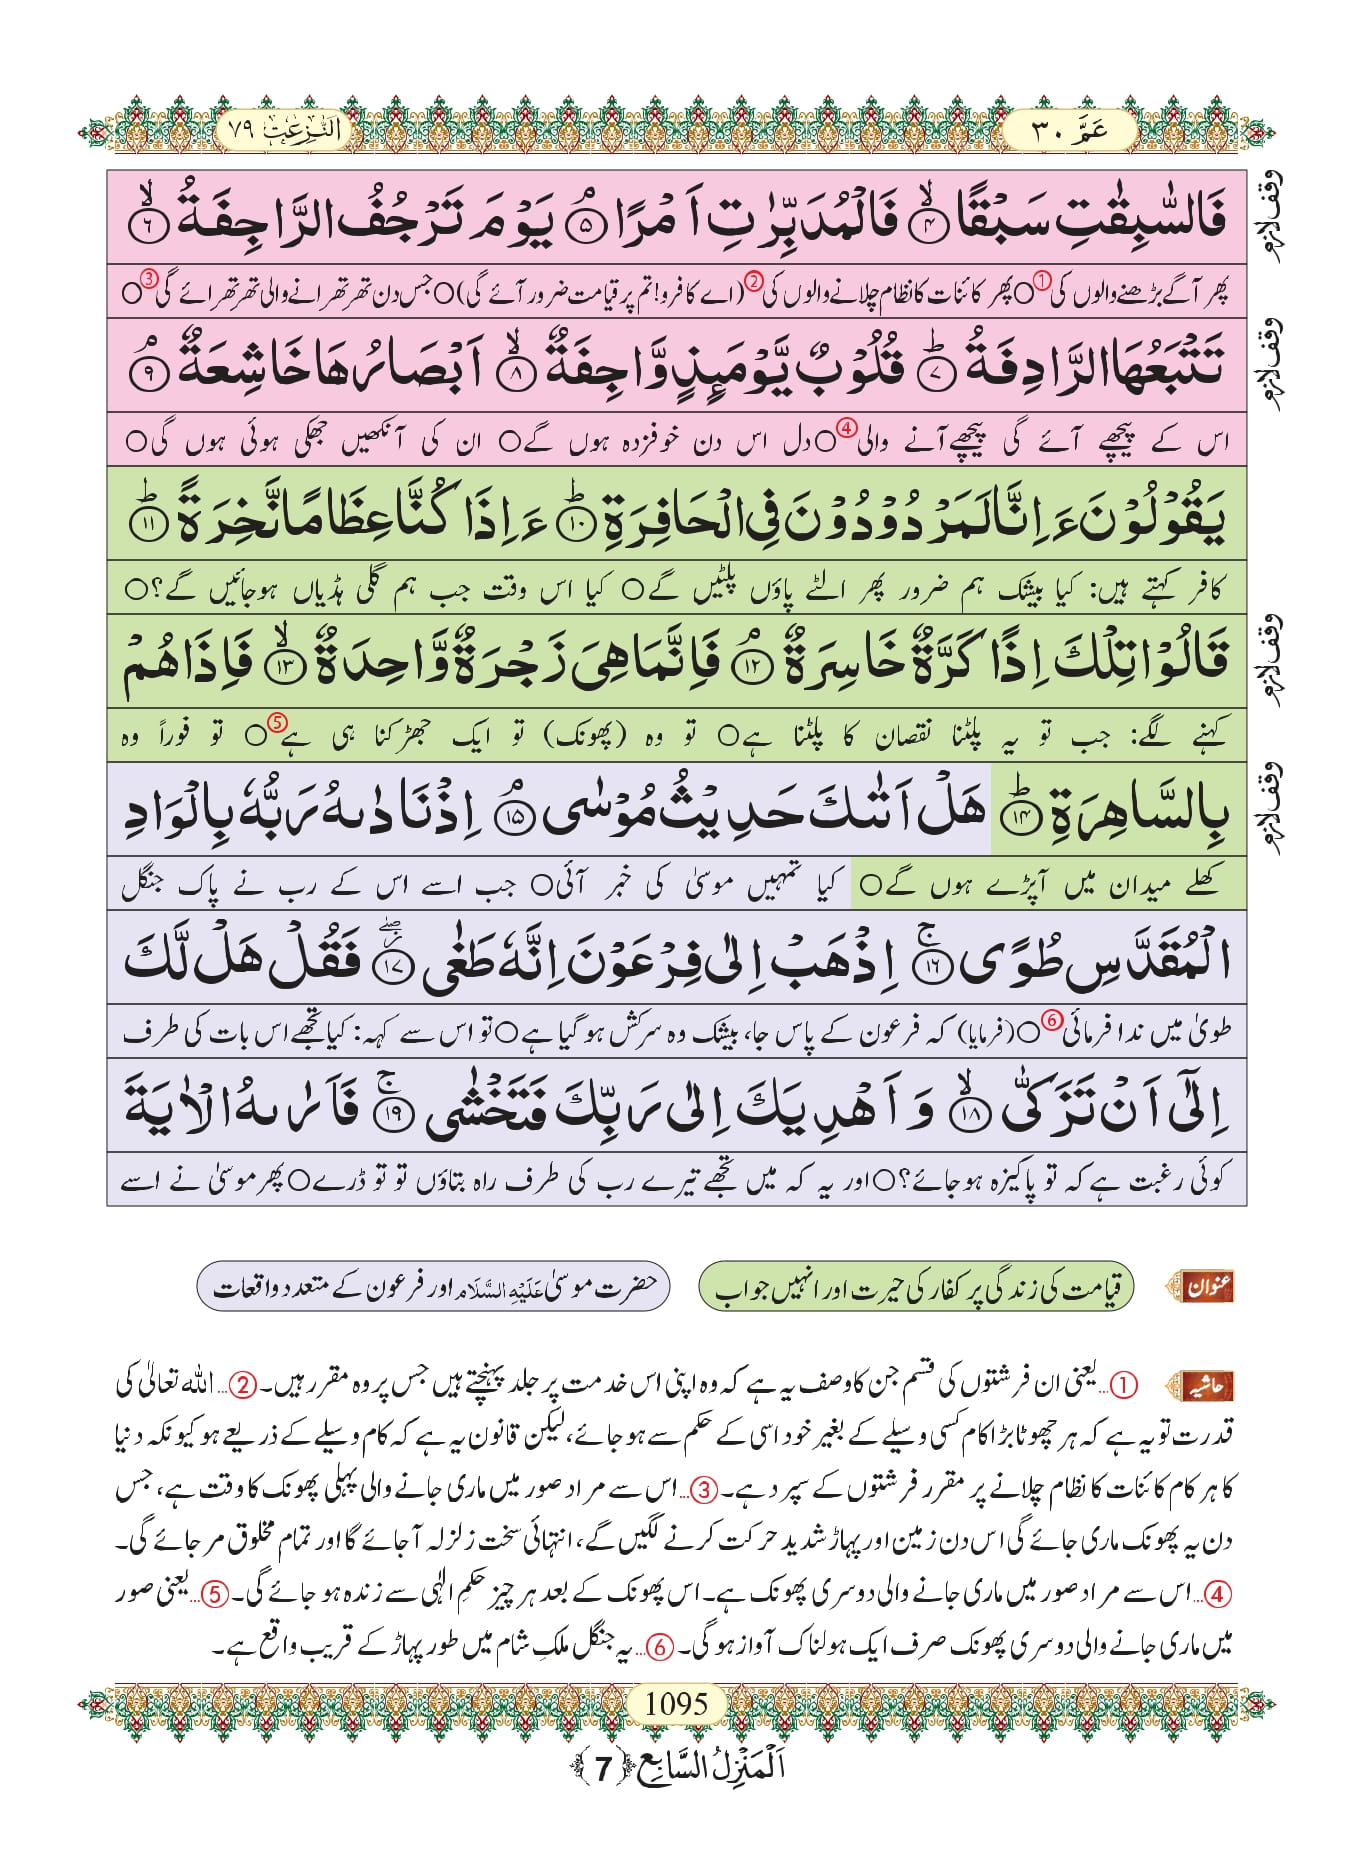 عَمَّ ٣٠
اَلنّٰزِعٰت ٧٩
فَالسّٰبِقٰتِ سَبْقًا ۙ﴿۴﴾ فَالْمُدَبِّرٰتِ اَمْرًا ۘ﴿۵﴾ یَوْمَ تَرْجُفُ الرَّاجِفَةُ ۙ﴿۶﴾
وقف لازم
پھر آگے بڑھنے والوں کی①○ پھر کائنات کا نظام چلانے والوں کی② (اے کافرو! تم پر قیامت ضرور آئے گی)○ جس دن تھرتھرانے والی تھرتھرائے گی③○
تَتْبَعُهَا الرَّادِفَةُ ؕ﴿۷﴾ قُلُوْبٌ یَّوْمَىِٕذٍ وَّاجِفَةٌ ۙ﴿۸﴾ اَبْصَارُهَا خَاشِعَةٌ ۘ﴿۹﴾
وقف لازم
اس کے پیچھے آئے گی پیچھے آنے والی④○ دل اس دن خوفزدہ ہوں گے○ ان کی آنکھیں جھکی ہوئی ہوں گی○
یَقُوْلُوْنَ ءَاِنَّا لَمَرْدُوْدُوْنَ فِی الْحَافِرَةِ ؕ﴿۱۰﴾ ءَاِذَا كُنَّا عِظَامًا نَّخِرَةً ؕ﴿۱۱﴾
کافر کہتے ہیں: کیا بیشک ہم ضرور پھر الٹے پاؤں پلٹیں گے○ کیا اس وقت جب ہم گلی ہڈیاں ہوجائیں گے؟○
قَالُوْا تِلْكَ اِذًا كَرَّةٌ خَاسِرَةٌ ۘ﴿۱۲﴾ فَاِنَّمَا هِیَ زَجْرَةٌ وَّاحِدَةٌ ۙ﴿۱۳﴾ فَاِذَا هُمْ
وقف لازم
کہنے لگے: جب تو یہ پلٹنا نقصان کا پلٹنا ہے○ تو وہ (پھونک) تو ایک جھڑکنا ہی ہے⑤○ تو فوراً وہ
بِالسَّاهِرَةِ ؕ﴿۱۴﴾ هَلْ اَتٰىكَ حَدِیْثُ مُوْسٰى ۘ﴿۱۵﴾ اِذْ نَادٰىهُ رَبُّهٗ بِالْوَادِ
وقف لازم
کھلے میدان میں آپڑے ہوں گے○ کیا تمہیں موسیٰ کی خبر آئی○ جب اسے اس کے رب نے پاک جنگل
الْمُقَدَّسِ طُوًى ۚ﴿۱۶﴾ اِذْهَبْ اِلٰى فِرْعَوْنَ اِنَّهٗ طَغٰى ٘ۖ﴿۱۷﴾ فَقُلْ هَلْ لَّكَ
طویٰ میں ندا فرمائی⑥○ (فرمایا) کہ فرعون کے پاس جا، بیشک وہ سرکش ہو گیا ہے○ تو اس سے کہہ: کیا تجھے اس بات کی طرف
اِلٰۤى اَنْ تَزَكّٰى ۙ﴿۱۸﴾ وَ اَهْدِیَكَ اِلٰى رَبِّكَ فَتَخْشٰى ۚ﴿۱۹﴾ فَاَرٰىهُ الْاٰیَةَ
کوئی رغبت ہے کہ تو پاکیزہ ہوجائے؟○ اور یہ کہ میں تجھے تیرے رب کی طرف راہ بتاؤں تو تو ڈرے○ پھر موسیٰ نے اسے
عنوان قیامت کی زندگی پر کفار کی حیرت اور انہیں جواب حضرت موسیٰ عَلَیْہِ السَّلَام اور فرعون کے متعدد واقعات
حاشیہ ①... یعنی ان فرشتوں کی قسم جن کا وصف یہ ہے کہ وہ اپنی اس خدمت پر جلد پہنچتے ہیں جس پر وہ مقرر ہیں۔ ②... اللہ تعالیٰ کی
قدرت تو یہ ہے کہ ہر چھوٹا بڑا کام کسی وسیلے کے بغیر خود اسی کے حکم سے ہو جائے، لیکن قانون یہ ہے کہ کام وسیلے کے ذریعے ہو کیونکہ دنیا
کا ہر کام کائنات کا نظام چلانے پر مقرر فرشتوں کے سپرد ہے۔ ③... اس سے مراد صور میں ماری جانے والی پہلی پھونک کا وقت ہے، جس
دن یہ پھونک ماری جائے گی اس دن زمین اور پہاڑ شدید حرکت کرنے لگیں گے، انتہائی سخت زلزلہ آجائے گا اور تمام مخلوق مر جائے گی۔
④... اس سے مراد صور میں ماری جانے والی دوسری پھونک ہے۔ اس پھونک کے بعد ہر چیز حکمِ الٰہی سے زندہ ہو جائے گی۔ ⑤... یعنی صور
میں ماری جانے والی دوسری پھونک صرف ایک ہولناک آواز ہوگی۔ ⑥... یہ جنگل ملکِ شام میں طور پہاڑ کے قریب واقع ہے۔
1095
اَلْمَنْزِلُ السَّابِع ﴿7﴾